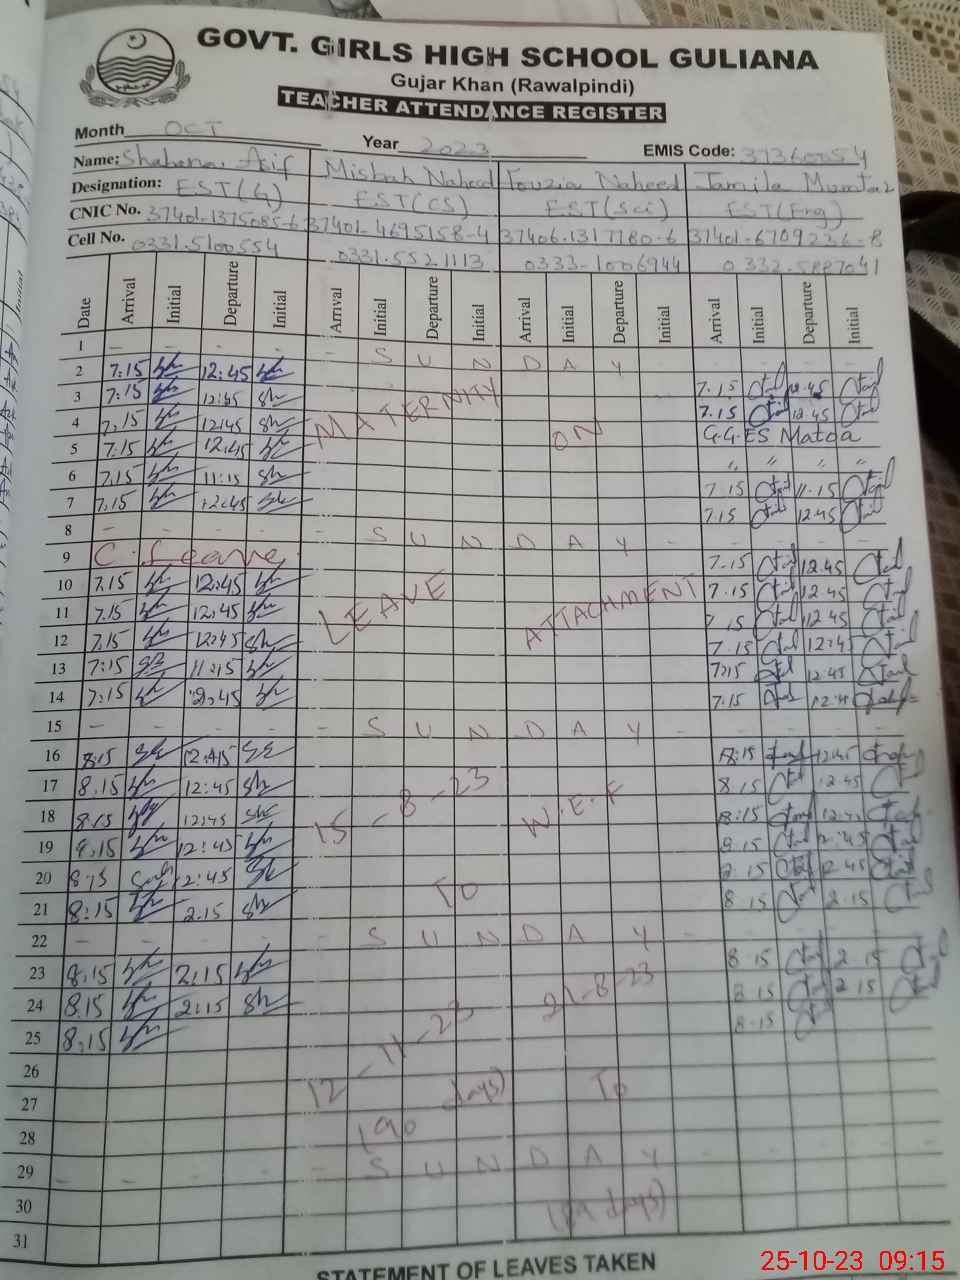 GOVT. GIRLS HIGH SCHOOL GULIANA
Gujar Khan (Rawalpindi)
TEACHER ATTENDANCE REGISTER
Month OCT Year 2023 EMIS Code: 37360054
Name: Shabana Asif Misbah Naheed Fouzia Naheed Jamila Mumtaz
Designation: EST(G) EST(CS) EST(Sci) EST(Eng)
CNIC No. 37401-1375085-6 37401-4695158-4 37406-1317780-6 37401-6709236-8
Cell No. 0331.5100554 0331.5521113 0333-1006944 0332.5887041
Date Arrival Initial Departure Initial Arrival Initial Departure Initial Arrival Initial Departure Initial Arrival Initial Departure Initial
1 - - - - - S U N D A Y
2 7:15 12:45 7.15 12.45
3 7:15 12:45 MATERNITY 7.15 12.45
4 7:15 12:45 ON G.G.ES Matoa
5 7:15 12:45 " " " "
6 7.15 11:15 7.15 11.15
7 7.15 12:45 7.15 12.45
8 - - - - - S U N D A Y
9 C. Leave 7.15 12.45
10 7.15 12:45 LEAVE ATTACHMENT 7.15 12.45
11 7.15 12:45 7.15 12.45
12 7.15 12:45 7.15
13 7:15 11:15 7:15 12.45
14 7:15 7.15
15 - - - - - S U N D A Y
16 8:15 12:45 8:15 12:45
17 8.15 12:45 15-8-23 W.E.F 8.15 12.45
18 8:15 12:45 8:15
19 8:15 12:45 8.15 12:45
20 8:15 12:45 To 8.15 12.45
21 8:15 2.15 8.15 2.15
22 - - - - - S U N D A Y -
23 8.15 2:15 8.15 2.15
24 8.15 2:15 12-11-23 21-8-23 8.15 2.15
25 8:15 8.15
26
27 (90 days) To
28
29 - - - - - S U N D A Y
30 (89 days)
31
STATEMENT OF LEAVES TAKEN
25-10-23 09:15